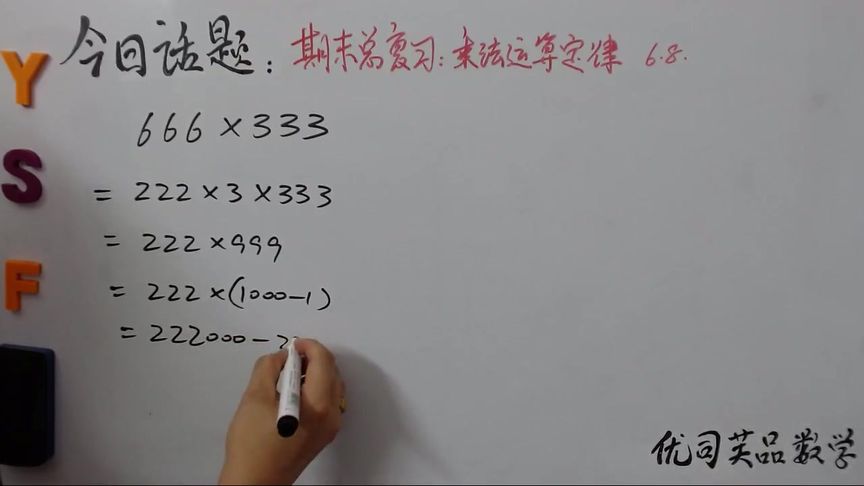 今日话题：期末总复习：乘法运算定律 6.8.
666×333
=222×3×333
=222×999
=222×(1000-1)
=222000-2
Y
S
F
优司芙品数学